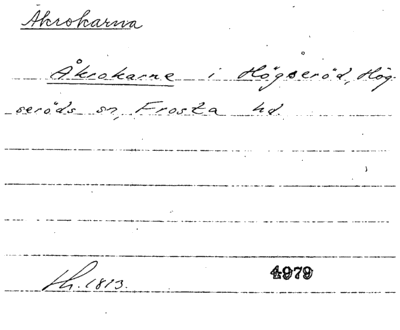 Åkrokarna
Åkrokarne i Högseröd, Hög-
seröds sn, Frosta hd.
4979
Lh. 1813.